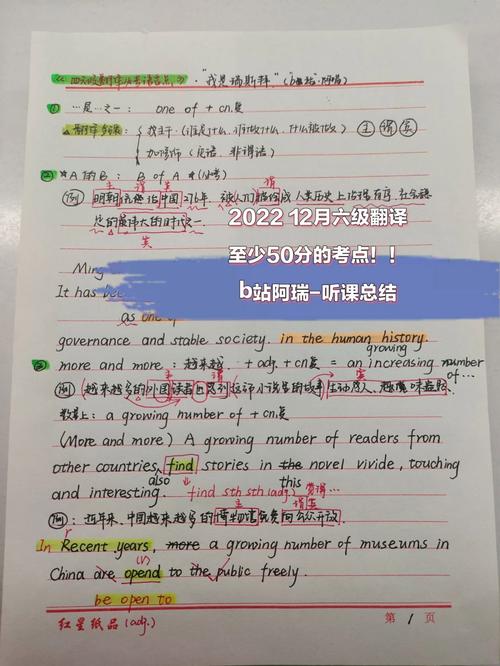 《四六级翻译必考语言点》 "我是瑞斯拜" (b站·阿瑞)
① …是…之一: one of + cn.复
找主干
加修饰
主 谓 宾
② *A 的 B: B of A
主 谓 宾
例 明朝统治中国276年, 被人们描绘成人类历史上治理有序、社会稳
定的最伟大的时代之一.
宾
2022 12月六级翻译
至少50分的考点!!
b站阿瑞-听课总结
Ming
It has been
as one of
governance and stable society. in the human history.
growing
③ more and more: 越来越 + adj. + cn复 = an increasing number
of…
例 越来越多的外国读者
生动感人、趣味
a growing number of + cn.复
(More and more) A growing number of readers from
other countries find stories in the novel vivide, touching
also this
and interesting. find sth sth (adj.)
主 谓 宾
例: 近年来, 中国越来越多的博物馆免费向公众开放.
r
In Recent years, more a growing number of museums in
(v)
China are opend to the public freely.
be open to
(adj.)
红星纸品 第 1 页